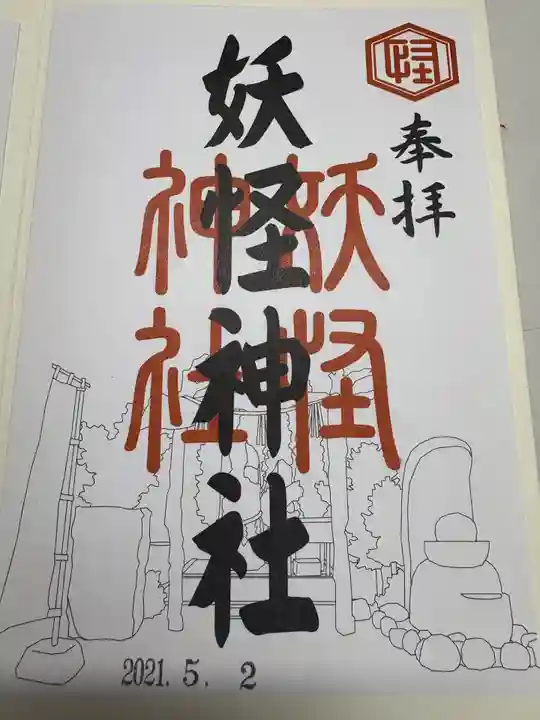 怪
奉拝
妖怪神社
妖怪
神社
2021. 5. 2